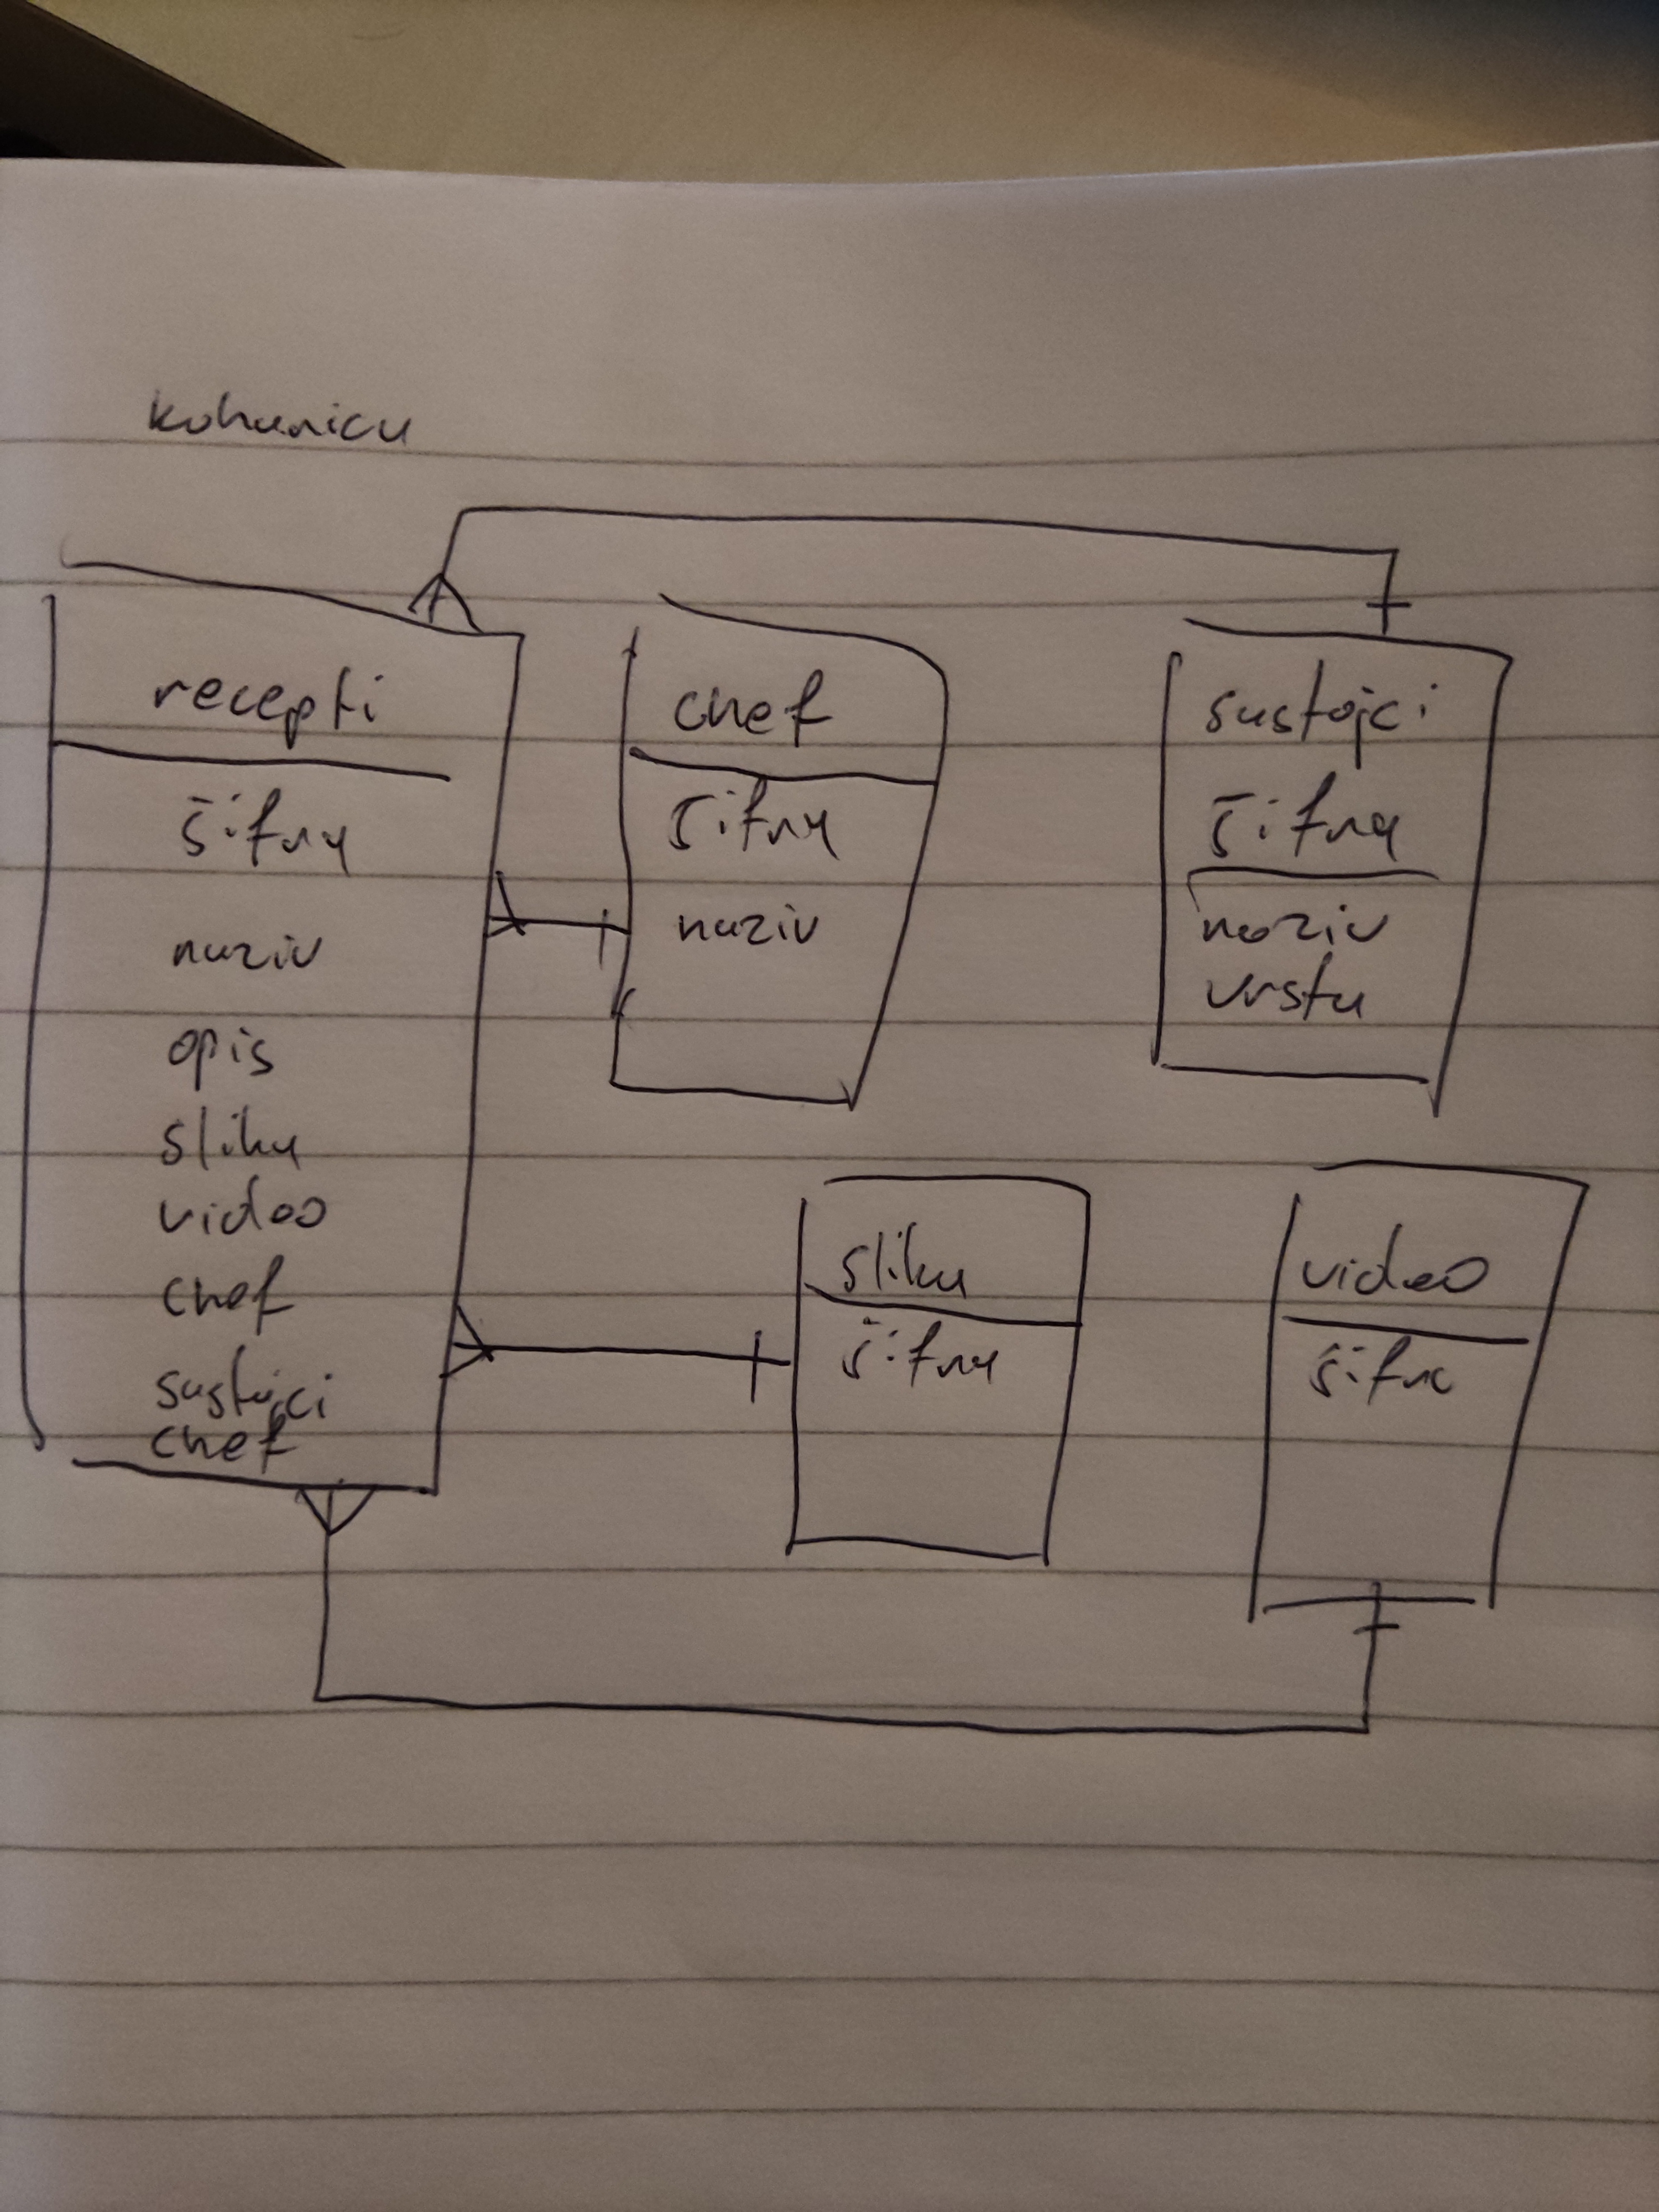 kuharica
recepti
šifra
naziv
opis
slika
video
chef
sastojci
chef
chef
šifra
naziv
sastojci
šifra
naziv
vrsta
slika
šifra
video
šifra